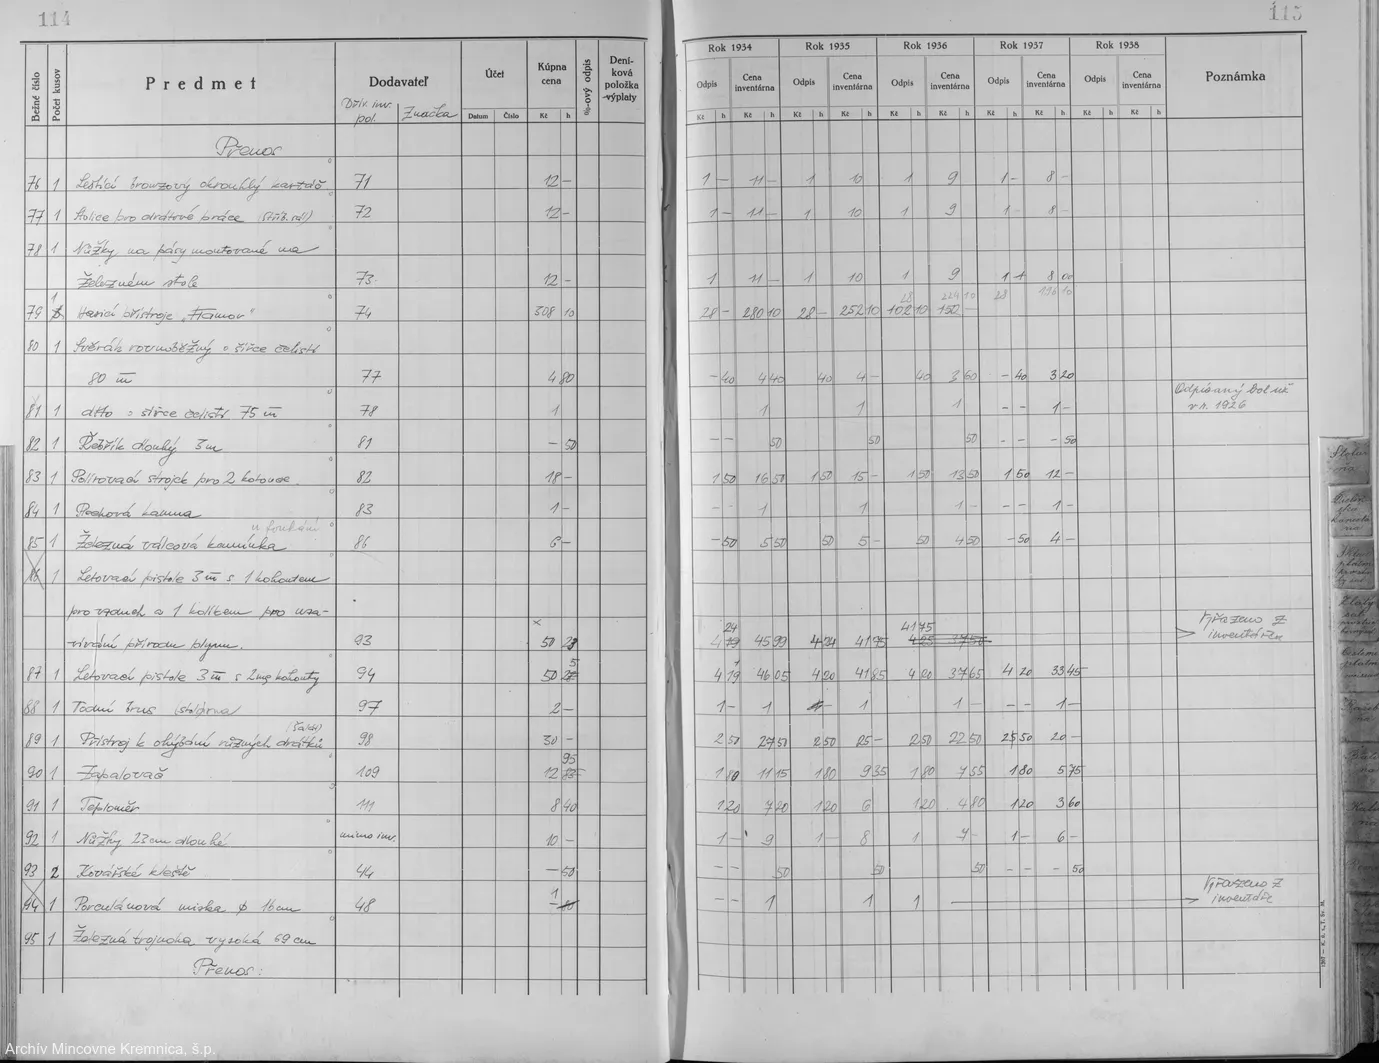 114
Bežné číslo | Počet kusov | Predmet | Dodavateľ | Účet | Kúpna cena | %-ový odpis | Deníková položka výplaty
Dřív. inv. pol. | Značka | Datum | Číslo | Kč | h
Přenos
76 1 Leštící bronzový okrouhlý kartáč 71 12 –
77 1 Stolice pro drátové práce 72 12 –
78 1 Nůžky na pásy montované na
železném stole 73 12 –
79 1 přístroje „Hamov" 74 308 10
80 1 Svěrák rovnoběžný o šířce čelistí
80 m̅ 77 4 80
81 1 dtto o šířce čelistí 75 m̅ 78 1
82 1 Řebřík dlouhý 3 m 81 – 50
83 1 Polírovací strojek pro 2 kotouče 82 18 –
84 1 Plechová kamna 83 1 –
85 1 Železná válcová kamínka 86 6 –
86 1 Letovací pistole 3 m̅ s 1 kohoutem
pro vzduch a 1 kolíkem pro uza-
vírání přívodu plynu. 93 50
87 1 Letovací pistole 3 m̅ s 2mg kohouty 94 50
88 1 Vodní brus (stolárna) 97 2 –
89 1 Přístroj k ohýbání různých drátků 98 30 –
90 1 Zapalovač 109 12 95
91 1 Teploměr 111 8 40
92 1 Nůžky 23 cm dlouhé mimo inv. 10 –
93 2 Kovářské kleště 44 – 50
94 1 Porculánová miska φ 16 cm 48 1
95 1 Železná trojnoha vysoká 69 cm
Přenos:
115
Rok 1934 | Rok 1935 | Rok 1936 | Rok 1937 | Rok 1938 | Poznámka
Odpis | Cena inventárna | Odpis | Cena inventárna | Odpis | Cena inventárna | Odpis | Cena inventárna | Odpis | Cena inventárna
Kč h Kč h Kč h Kč h Kč h Kč h Kč h Kč h Kč h Kč h
1 – 11 – 1 10 1 9 1 – 8 –
1 – 11 – 1 10 1 9 1 – 8 –
1 11 – 1 10 1 9 1 8 00
28 224 10 28 196 10
28 – 280 10 28 – 252 10 102 10 150 –
– 40 4 40 40 4 – 40 3 60 – 40 3 20
1 1 1 – – 1 – Odpisaný bol už v r. 1926
– – 50 50 50 – – – 50
1 50 16 50 1 50 15 – 1 50 13 50 1 50 12 –
– – 1 1 1 – – – 1 –
– 50 5 50 50 5 – 50 4 50 – 50 4 –
24 41 75
4 45 99 4 24 41 75 4 25 37 50 Vyřazeno z inventáře
4 19 46 05 4 20 41 85 4 20 37 65 4 20 33 45
1 – 1 1 1 – – – 1 –
2 50 27 50 2 50 25 – 2 50 22 50 25 50 20 –
1 80 11 15 1 80 9 35 1 80 7 55 1 80 5 75
1 20 7 20 1 20 6 1 20 4 80 1 20 3 60
1 – 9 1 – 8 1 – 7 – 1 – 6 –
– – 50 50 50 – – – 50
– – 1 1 1 Vyřazeno z inventáře
Archív Mincovne Kremnica, š.p.